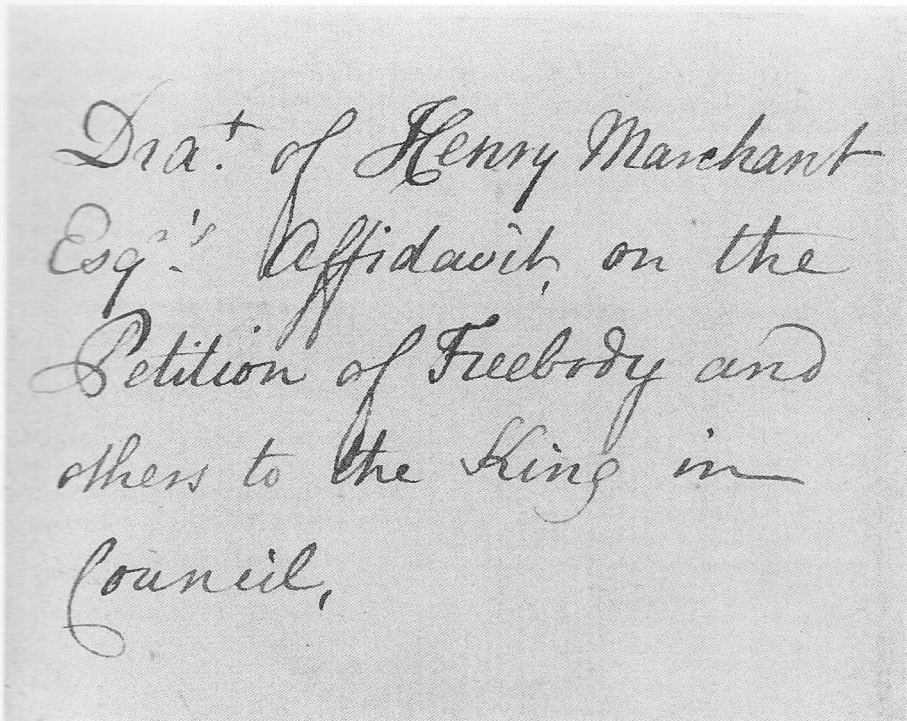 Dra.t of Henry Marchant
Esqr.'s Affidavit, on the
Petition of Freebody and
others to the King in
Council,